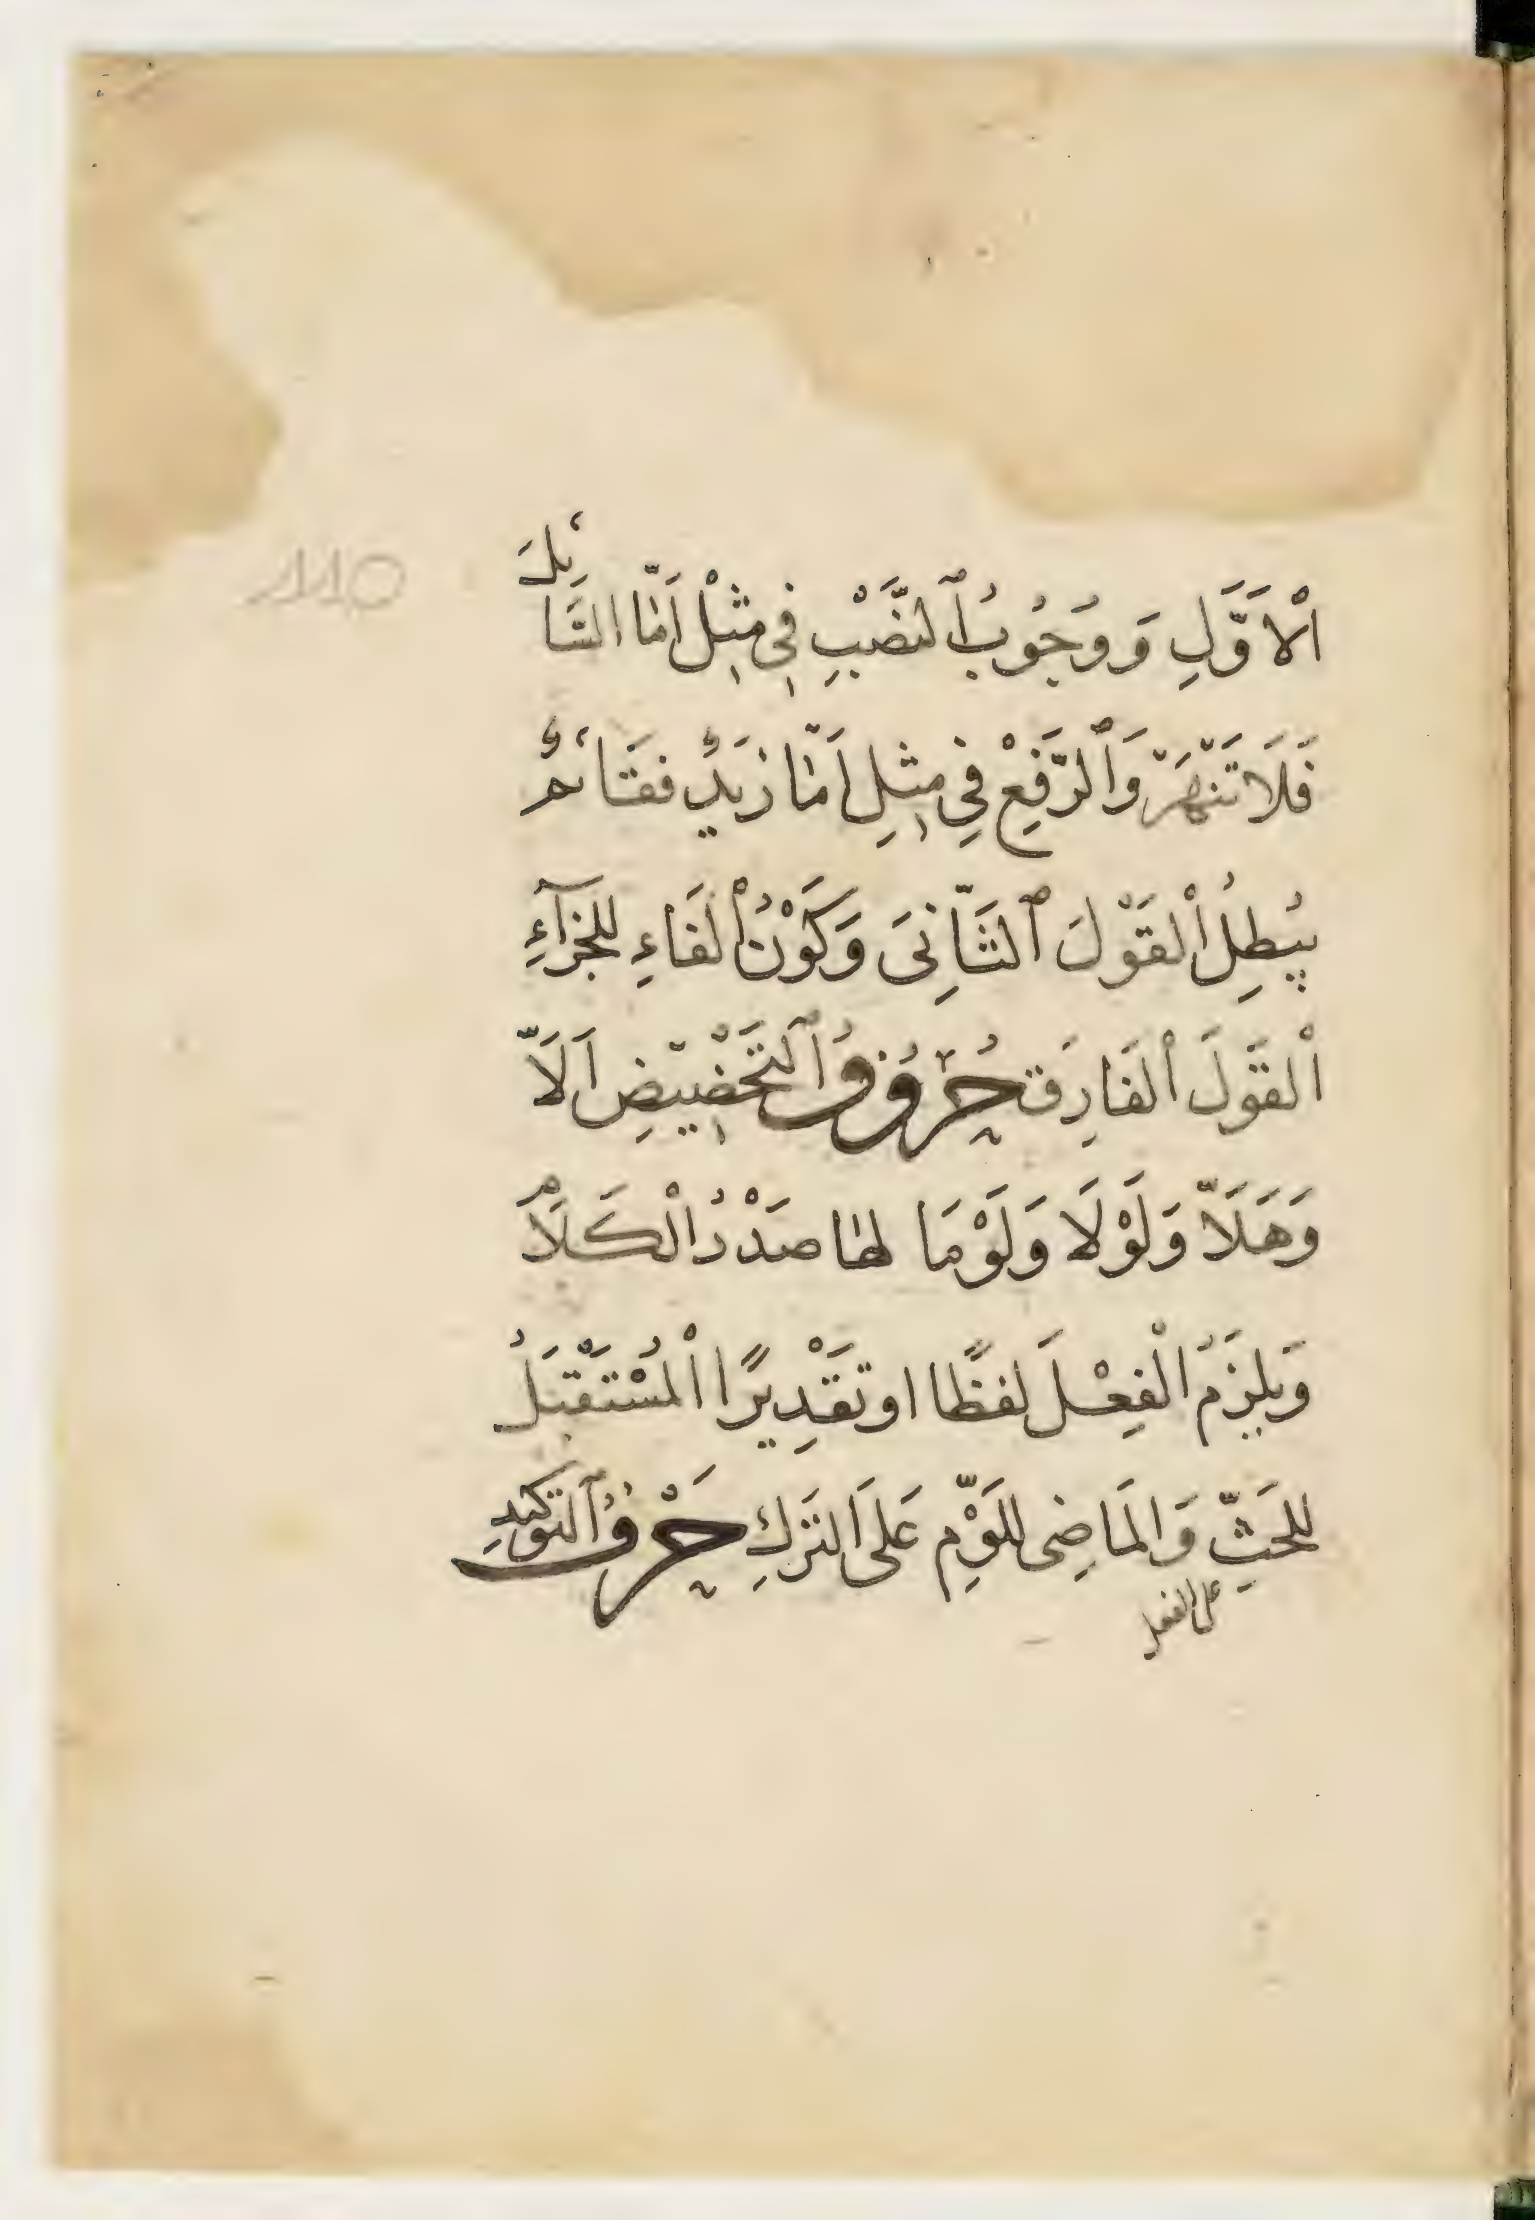 اْلاَوَّلِ وَوُجُوْبُ ٱلنَّصْبِ فِي مِثْلِ اَمَّا السَّائِلَ
فَلَا تَنْهَرْ وَٱلرَّفْعِ فِي مِثْلِ اَمَّا زَيْدٌ فَقَائِمٌ
يُبْطِلُ اْلقَوْلَ ٱلثَّانِىَ وَكَوْنُ اْلفَاءِ لِلْجَزَآءِ
اْلقَوْلَ اْلفَارِقَ حُرُوْفُ ٱلتَّحْضِيْضِ اَلَّا
وَهَلَّا وَلَوْلَا وَلَوْمَا لها صَدْرُ اْلكَلَامِ
وَيَلْزَمُ اْلفِعْلَ لَفْظًا او تَقْدِيرًا اْلمُسْتَقْبَلُ
لِلحَثِّ وَالمَاضِى لِلَّوْمِ عَلَى التَرْكِ حَرْفُ ٱلتَوَكِيدِ
على الفعل
110